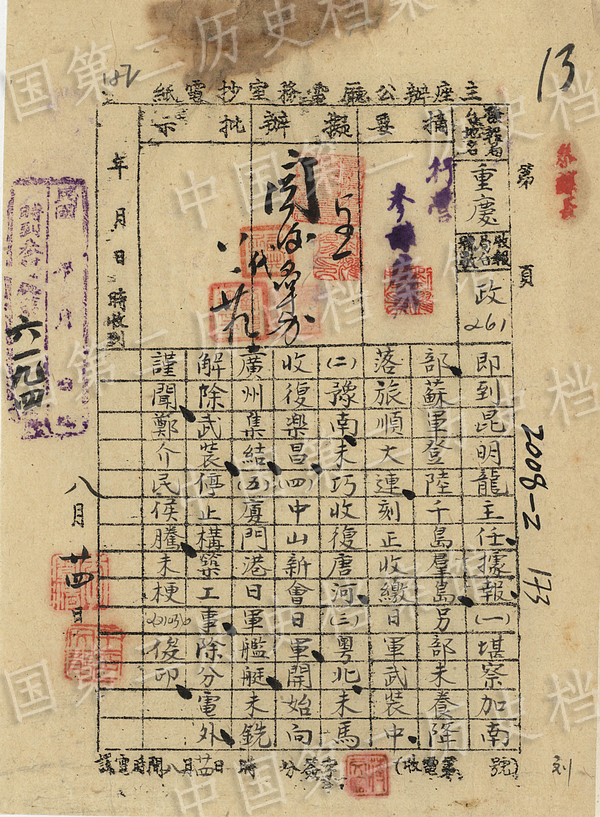 13
182
主座辦公廳電務室抄電紙
第
頁
發報局在地名
重慶
收報局台號數
政
261
摘要
擬辦
批示
年月日時收到
即到昆明龍主任據報(一)堪察加南
部蘇軍登陸千島羣島另部未養降
落旅順大連刻正收繳日軍武裝中
(二)豫南未巧收復唐河(三)粵北未馬
收復樂昌(四)中山新會日軍開始向
廣州集結(五)廈門港日軍艦艇未銑
解除武裝停止構築工事除分電外
謹聞鄭介民侯騰未梗俊印
八月廿四日
六一九四
2008-2 173
譯電時間八月廿四日 時 分簽字 (收電第 號)
中国第二历史档案馆